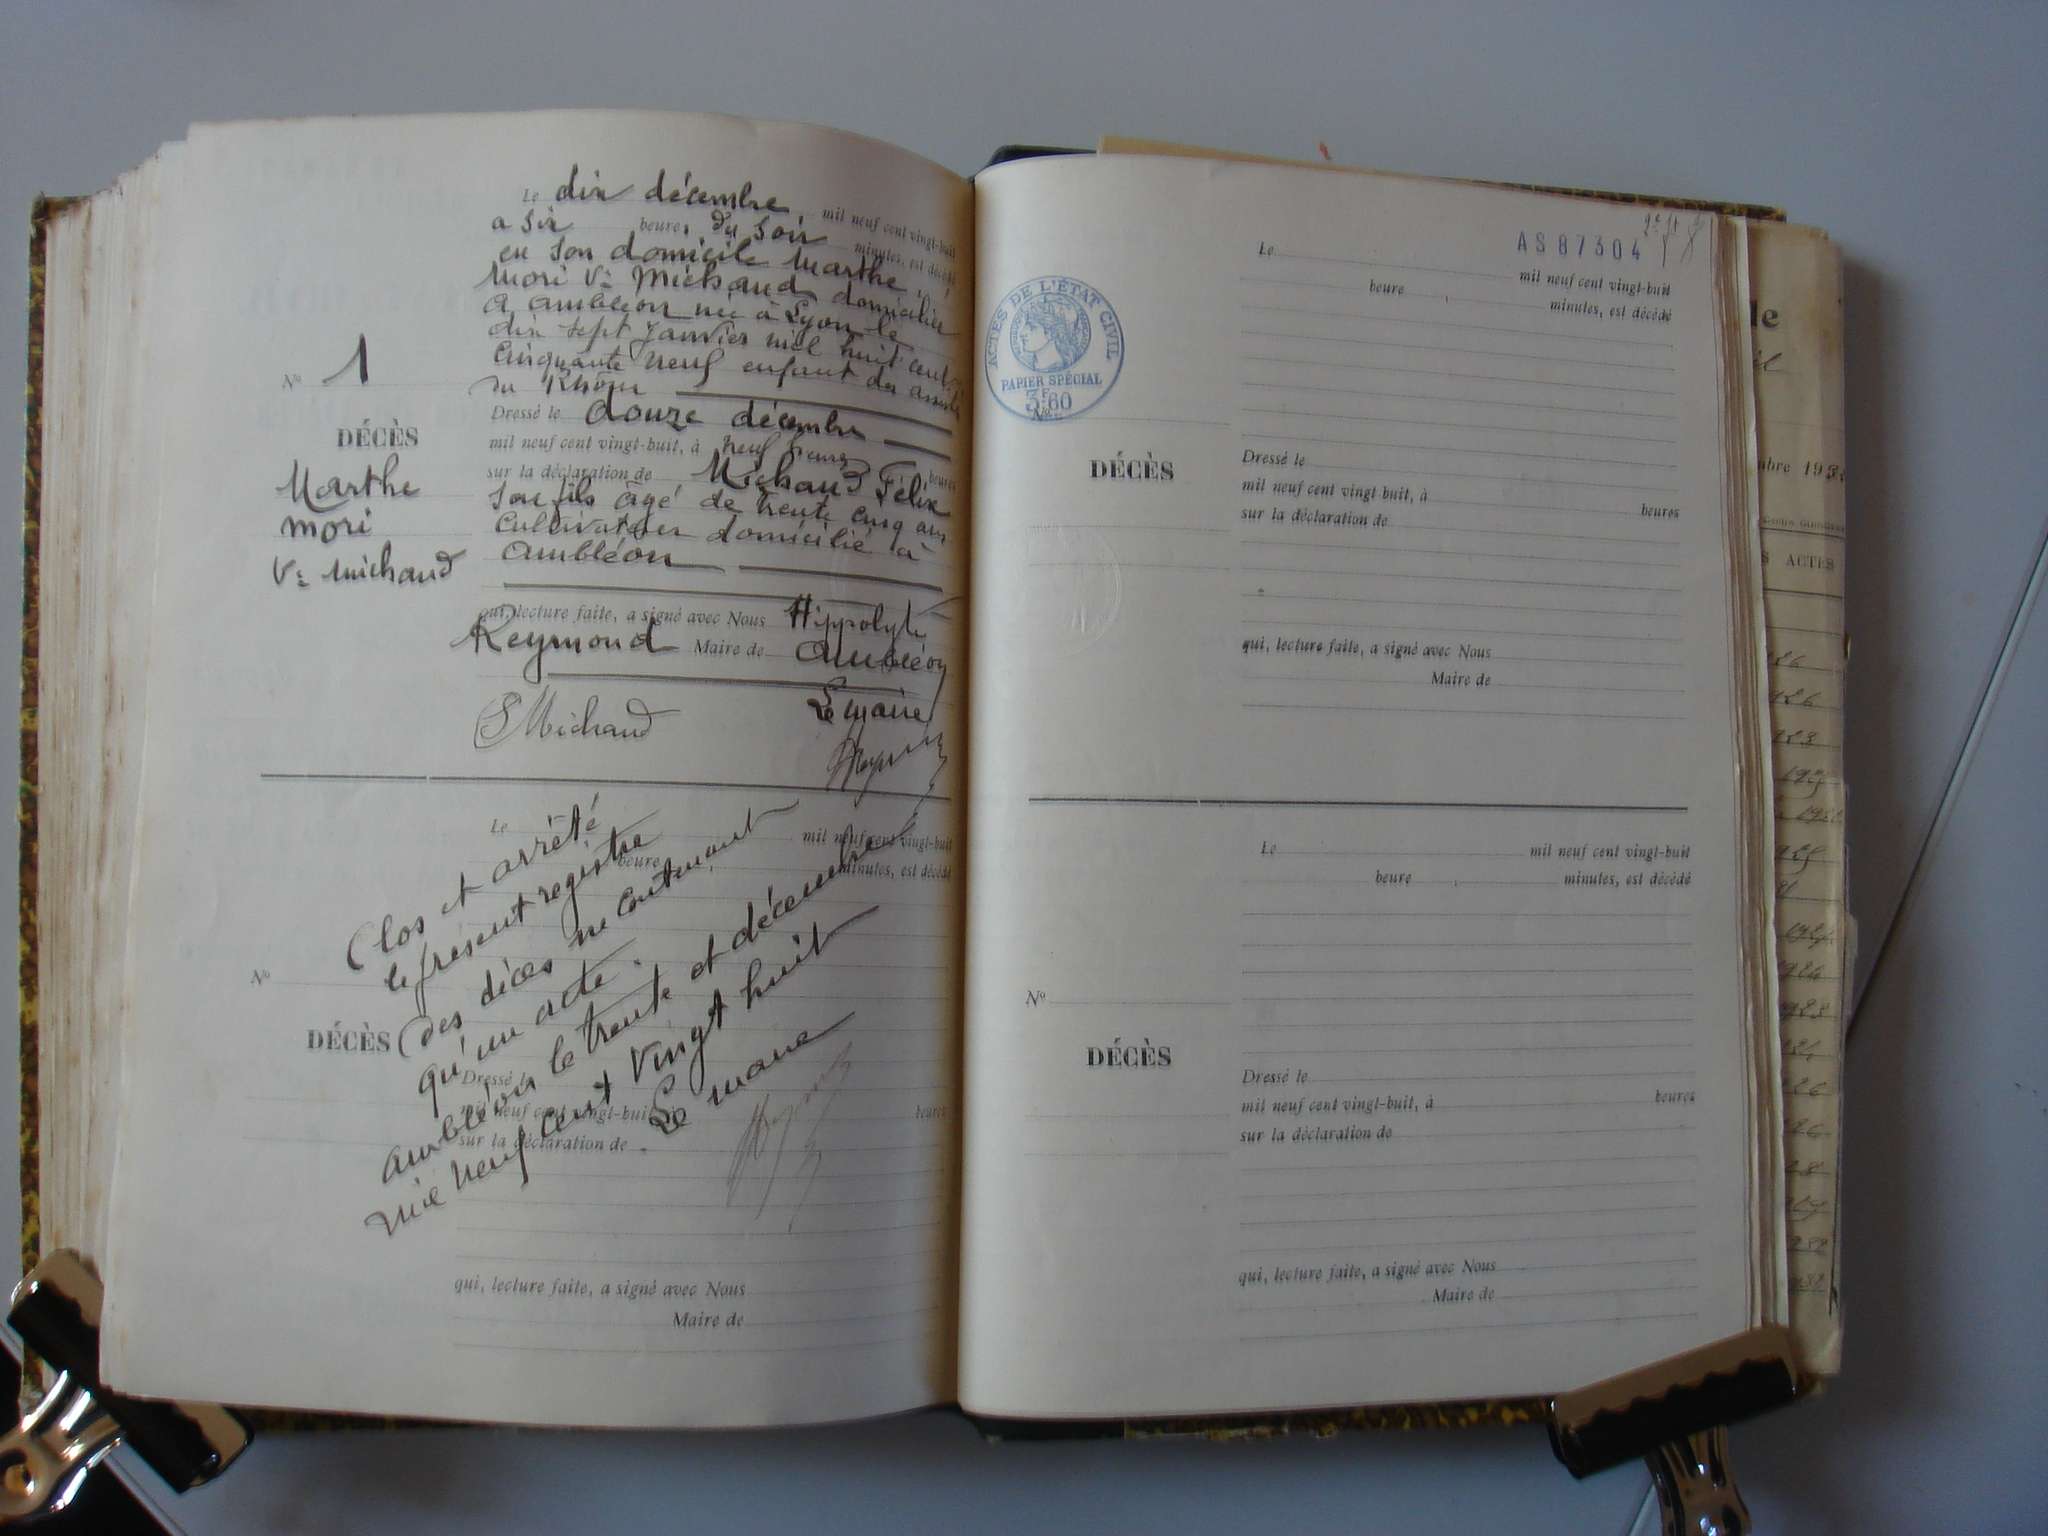 Le dix décembre, mil neuf cent vingt-huit
a six heures du soir minutes, est décédé
en son domicile Marthe
Mori Vve Michaud domicilié
a Ambléon née à Lyon le
dix sept Janvier mil huit cent
cinquante neuf enfant des assistés
du Rhône
Nº 1
DÉCÈS
Marthe
Mori
Vve Michaud
Dressé le douze décembre
mil neuf cent vingt-huit, à neuf heures heures
sur la déclaration de Michaud Félix
son fils âgé de trente cinq ans
Cultivateur domicilié à
Ambléon
qui, lecture faite, a signé avec Nous Hippolyte
Reymond Maire de Ambléon
Michaud
Le maire
Le mil neuf cent vingt-huit
heure minutes, est décédé
Nº
DÉCÈS
Dressé le
mil neuf cent vingt-huit, à heures
sur la déclaration de
qui, lecture faite, a signé avec Nous
Maire de
Clos et arrêté
le présent registre
des décès ne contenant
qu'un acte.
Ambléon le trente et décembre
mil neuf cent vingt huit
Le maire
AS 87304
ACTES DE L'ÉTAT CIVIL
PAPIER SPÉCIAL
3F60
Le
mil neuf cent vingt-huit
heure , minutes, est décédé
Nº
DÉCÈS
Dressé le
mil neuf cent vingt-huit, à heures
sur la déclaration de
qui, lecture faite, a signé avec Nous
Maire de
Le mil neuf cent vingt-huit
heure , minutes, est décédé
Nº
DÉCÈS
Dressé le
mil neuf cent vingt-huit, à heures
sur la déclaration de
qui, lecture faite, a signé avec Nous
Maire de
ACTES